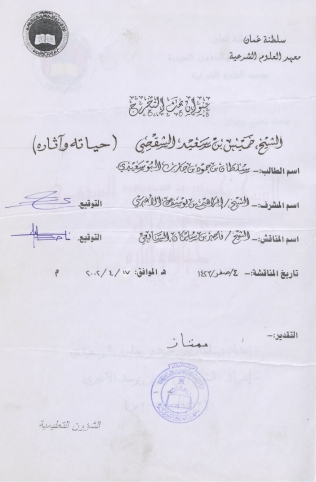 سلطنة عمان
معهد العلوم الشرعية
عنوان بحث التخرج
الشيخ خميس بن سعيد الشقصي (حياته وآثاره)
اسم الطالب:- سلطان بن حمود بن حمد البوسعيدي
اسم المشرف:- الشيخ/ إبراهيم بن يوسف الأغبري التوقيع.
اسم المناقش:- الشيخ/ ناصر بن سليمان السابعي التوقيع.
تاريخ المناقشة:- ٤/صفر/١٤٢٣ هـ الموافق: ١٧ / ٤ / ٢٠٠٢ م
التقدير:- ممتاز
الشؤون التعليمية